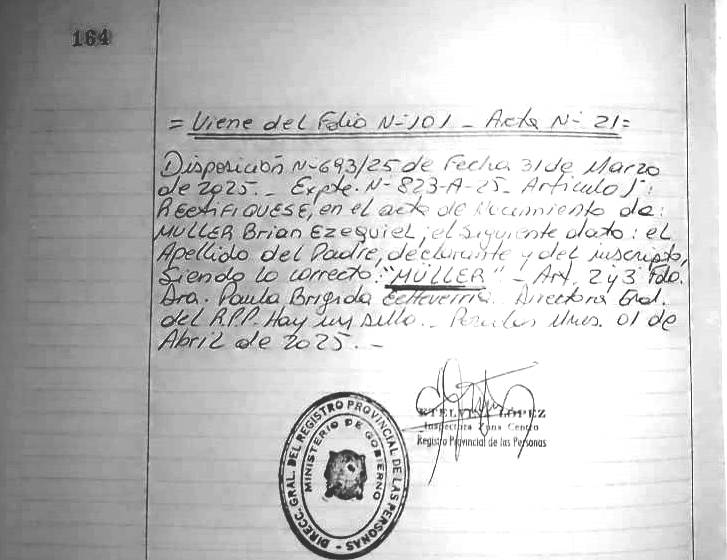 164
= Viene del Folio N- 101 - Acta N- 21 =
Disposición N- 693/25 de Fecha 31 de Marzo
de 2025. - Expte. N- 823-A-25- Artículo 1-:
RECTIFIQUESE, en el acta de Nacimiento de:
MULLER Brian Ezequiel, el siguiente dato: el
Apellido del Padre, declarante y del inscripto,
Siendo lo correcto: "MÜLLER" - Art. 2 y 3 Fdo.
Dra. Paula Brigida Echeverria. Directora Gral.
del R.P.P. Hay un sello. - Posadas Mnes. 01 de
Abril de 2025. -
ETELVINA LOPEZ
Inspectora Zona Centro
Registro Provincial de las Personas
DIRECC. GRAL. DEL REGISTRO PROVINCIAL DE LAS PERSONAS -
MINISTERIO DE GOBIERNO